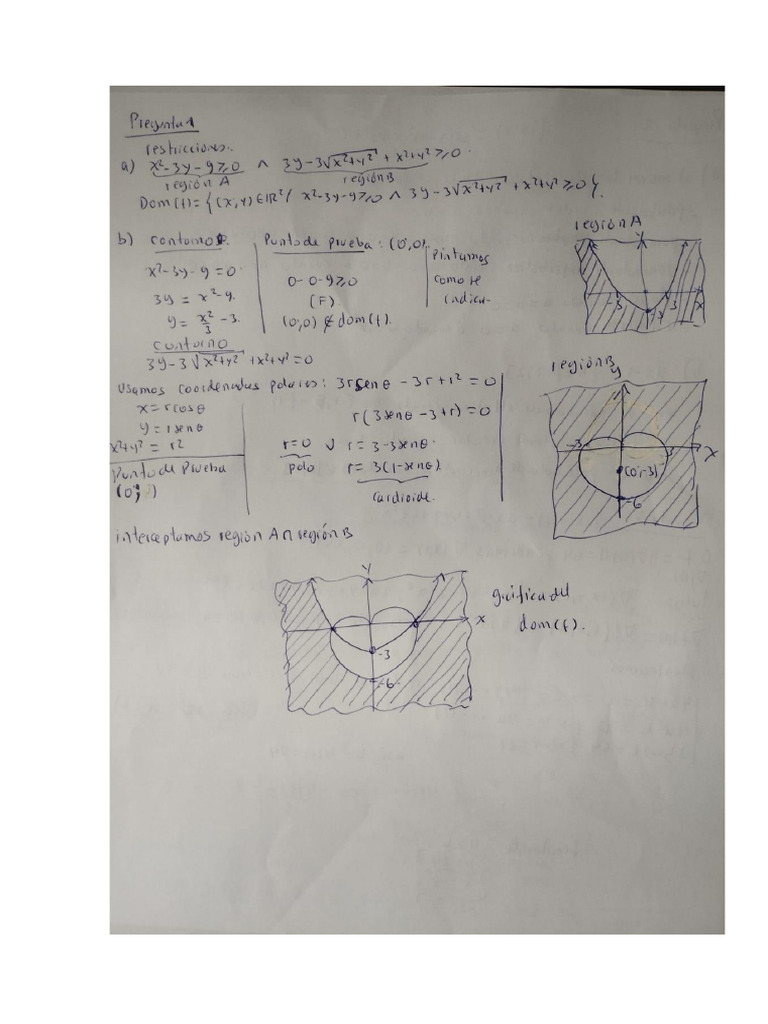 Pregunta 1
restricciones:
a) x²-3y-9≥0 ∧ 3y-3√x²+y² + x²+y²≥0.
región A región B
Dom(f)={(x,y)∈ℝ²/ x²-3y-9≥0 ∧ 3y-3√x²+y² + x²+y²≥0}.
b) contorno.
x²-3y-9=0
3y = x²-9.
y = x²/3 -3.
Punto de prueba: (0,0).
0-0-9≥0
(F)
(0;0)∉dom(f).
Pintamos
como se
indica.
región A
y
-3
3
x
-3
contorno
3y-3√x²+y² +x²+y²=0
Usamos coordenadas polares: 3rsenθ -3r+r² =0
x=rcosθ
y=rsenθ
x²+y² = r²
r(3senθ-3+r)=0
r=0 ∨ r=3-3senθ.
polo r=3(1-senθ).
cardioide.
Punto de Prueba
región B
y
-3
3
x
(0;-3)
-6
interceptamos región A∩región B
y
x
-3
-6
gráfica del
dom(f).